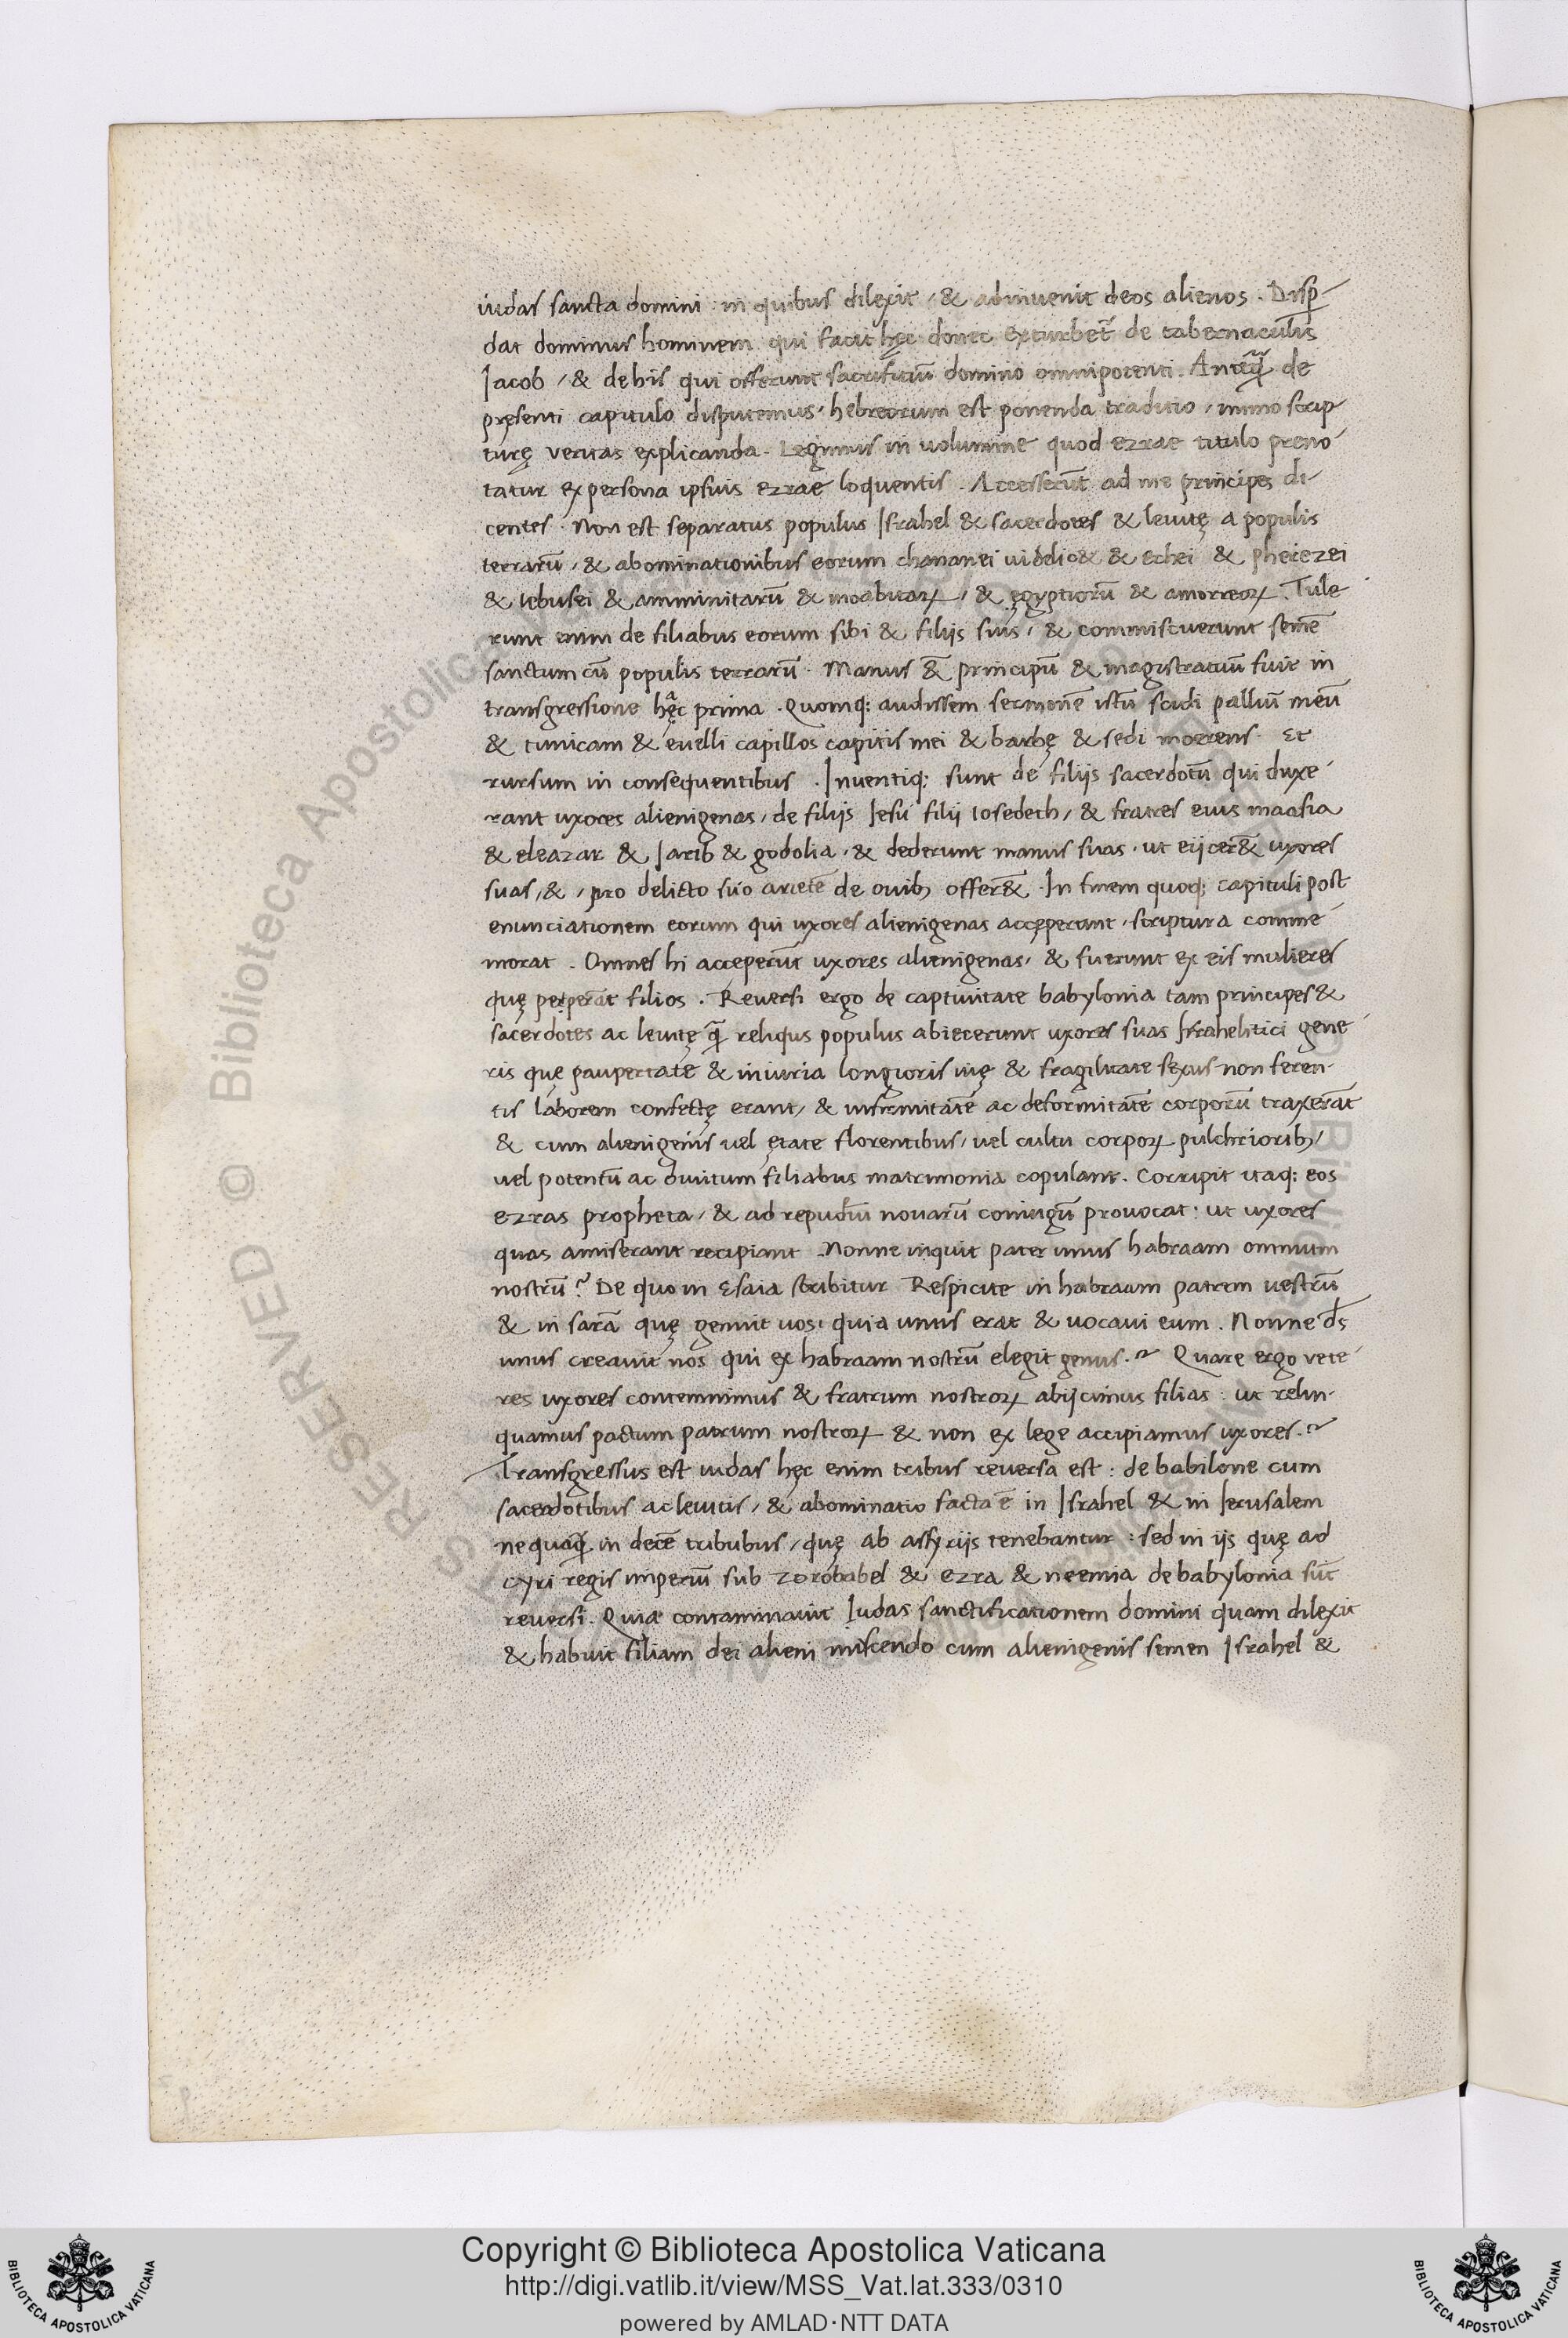 iudas sancta domini in quibus dilexit / & adinuenit deos alienos . Disp̄
dat dominus hominem qui facit hęc donec exturbet̃ de tabernaculis
Jacob / & de his qui offerunt sacrificiũ domino omnipotenti . Anteq̃ de
pręsenti capitulo disputemus / hebreorum est ponenda traditio / immo scrip
turę veritas explicanda . Legimus in uolumine quod ezrae titulo preno
tatur ex persona ipsius ezrae loquentis . Accesserũt ad me principes di-
centes . Non est separatus populus Israhel & sacerdotes & leuitę a populis
terrarũ / & abominationibus eorum chananei uidelic& & ethei & pherezei
& iebusei & amminitarũ & moabitaꝝ / & ęgyptiorũ & amorreoꝝ . Tule
runt enim de filiabus eorum sibi & filijs suis / & commiscuerunt semẽ
sanctum cũ populis terrarũ . Manus &̃ principũ & magistratuũ fuit in
transgressione hęc prima . Quomq; audissem sermonẽ istũ scidi palliũ meũ
& tunicam & euelli capillos capitis mei & barbę & sedi moerens . Et
rursum in consequentibus . Inuentiq; sunt de filijs sacerdotũ qui duxe
rant uxores alienigenas / de filijs Jesu filij iosedech / & fratres eius maasia
& eleazar & Jarib & godolia . & dederunt manus suas . ut eijcer&̃ uxores
suas / & / pro delicto suo arietẽ de ouibꝫ offer&̃ . In finem quoq; capituli post
enunciationem eorum qui uxores alienigenas accęperunt / scriptura comme
morat . Omnes hi acceperũt uxores alienigenas / & fuerunt ex eis mulieres
quę peperãt filios . Reuersi ergo de captiuitate babylonia tam principes &
sacerdotes ac leuitę q̃ reliqus populus abiecerunt uxores suas Israhelitici gene
ris quę paupertate & iniuria longioris uię & fragilitate sexus non feren-
tis laborem confectę erant / & infirmitatẽ ac deformitatẽ corporũ traxerãt
& cum alienigenis uel ętate florentibus / uel cultu corpoꝝ pulchrioribꝫ /
uel potentũ ac diuitum filiabus matrimonia copulant . Corripit itaq; eos
ezras propheta / & ad repudiũ nouarũ coniugũ prouocat : ut uxores
quas amiserant recipiant . Nonne inquit pater unus habraam omnium
nostrũ ? De quo in Esaia scribitur Respicite in habraam patrem uestrũ
& in sarã quę genuit uos : quia unus erat & uocaui eum . Nonne d̃s
unus creauit nos qui ex habraam nostrũ elegit genus .? Quare ergo vete
res uxores contemnimus & fratrum nostroꝝ abijcimus filias : ut relin-
quamus pactum patrum nostroꝝ & non ex lege accipiamus uxores .?
Transgressus est iudas hęc enim tribus reuersa est : de babilone cum
sacerdotibus ac leuitis / & abominatio facta ẽ in Israhel & in Jerusalem
nequaq̃ in decẽ tribubus / quę ab assyrijs tenebantur : sed in ijs quę ad
cyri regis imperiũ sub zorobabel & ezra & neemia de babylonia sũt
reuersi . Quia contaminauit Judas sanctificationem domini quam dilexit
& habuit filiam dei alieni miscendo cum alienigenis semen Israhel &
RESERVED © Biblioteca Apostolica
Copyright © Biblioteca Apostolica Vaticana
http://digi.vatlib.it/view/MSS_Vat.lat.333/0310
powered by AMLAD·NTT DATA
BIBLIOTECA APOSTOLICA VATICANA
BIBLIOTECA APOSTOLICA VATICANA